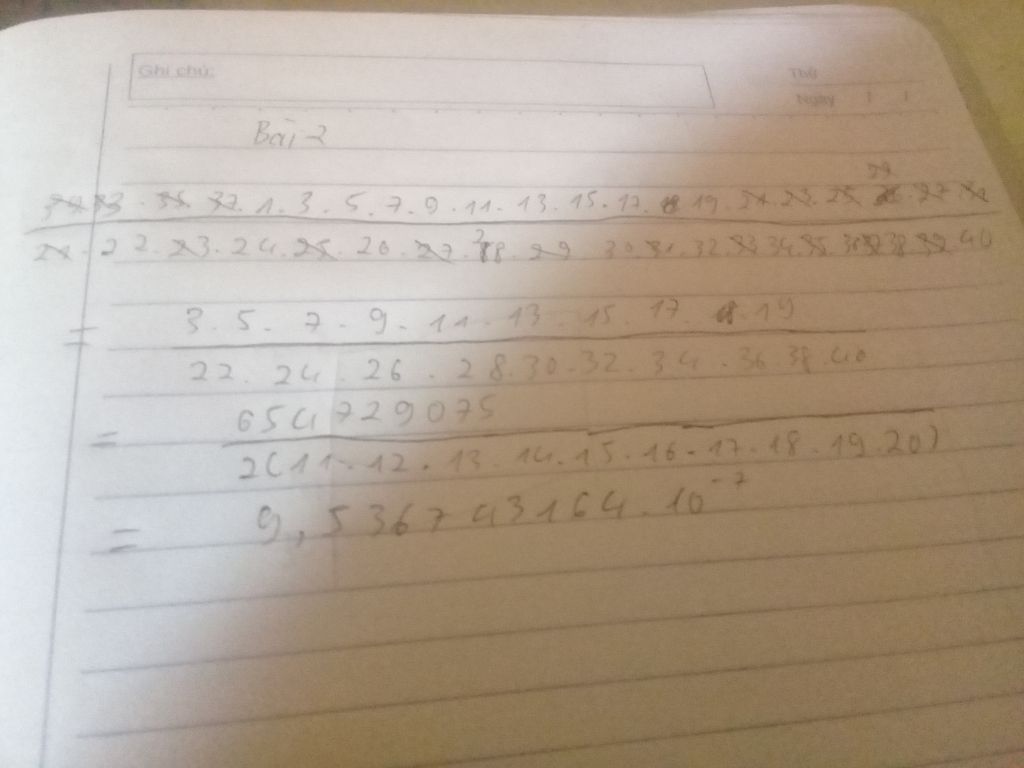 Ghi chú:
Thứ
Ngày / /
Bài 2
33. 35. 37. 1. 3. 5. 7. 9. 11. 13. 15. 17. 19. 21. 23. 25. 27.
22. 23. 24. 25. 27. 28. 29 30. 31. 32. 33 34. 35. 38. 39. 40
= 3. 5. 7. 9. 11. 13. 15. 17. 19
22. 24. 26. 28. 30. 32. 34. 36 38. 40
= 654729075
2(11. 12. 13. 14. 15. 16. 17. 18. 19. 20)
= 9,536743164. 10⁻⁷